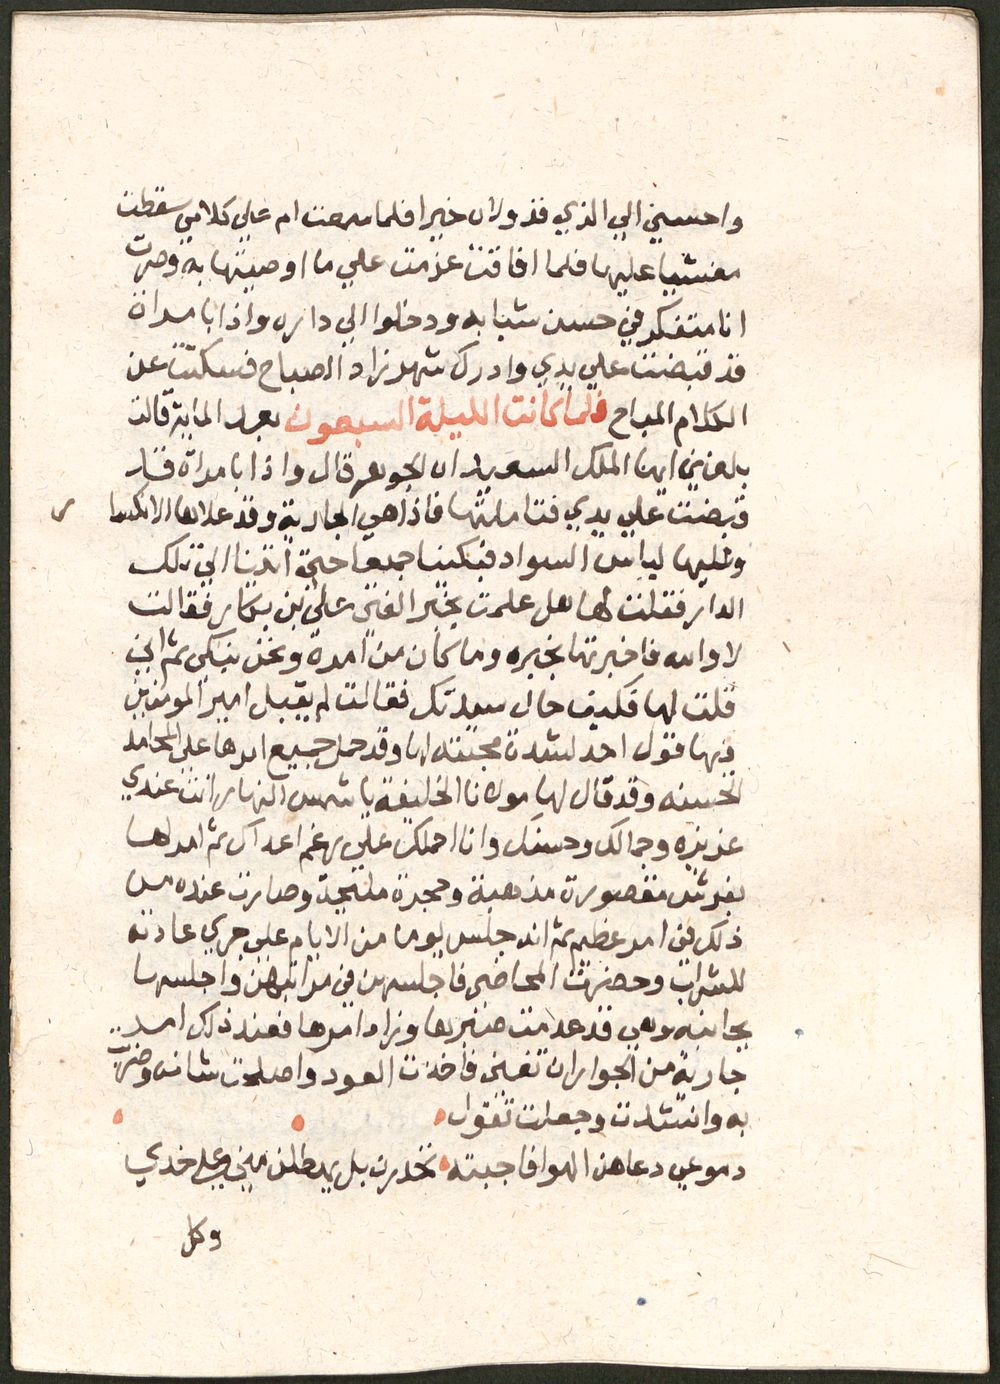 واحسني الي الذي قد ولاك خيرا فلما سمعت ام علي كلامي سقطت
مغشيا عليها فلما افاقت عزمت علي ما اوصيتها به وصرت
انا متفكر في حسن شبابه ودخلوا الي داره واذا بامراة
قد قبضت علي يدي وادرك شهرزاد الصباح فسكتت عن
الكلام المباح فلما كانت الليلة السبعون بعد الماية قالت
بلغني ايها الملك السعيد ان الجوهري قال واذا بامراة قد
قبضت علي يدي فتاملتها فاذا هي الجارية وقد علاها الانكسا
وعليها لباس السواد فبكينا جميعا حتي اتينا الي تلك
الدار فقلت لها هل علمت بخبر الفتي علي بن بكار فقالت
لا والله فاخبرتها بخبره وما كان من امره ونحن نبكي ثم اني
قلت لها فكيف حال سيدتك فقالت لم يقبل امير المومنين
فيها قول احد لشدة محبته لها وقد حمل جميع امرها علي المحامد
الحسنه وقد قال لها مولانا الخليفة يا شمس النهار انت عندي
عزيزه وجمالك وحسنك وانا احملك علي رغم اعداك ثم امر لها
بفرش مقصورة مذهبة وحجرة مليحة وصارت عنده من
ذلك في امر عظيم ثم انه جلس يوما من الايام علي جري عادته
للشراب وحضرت المحاضي فاجلسهن في مراتبهن واجلسها
بجانبه وهي قد عدمت صبرها وزاد امرها فعند ذلك امر
جارية من الجوار ان تغني فاخذت العود واصلحت شانه وضربت
به وانشدت وجعلت تقول
دموعي دعاهن الهوا فاجبته تحدرت بل يهطلن مني علي خدي
وكل